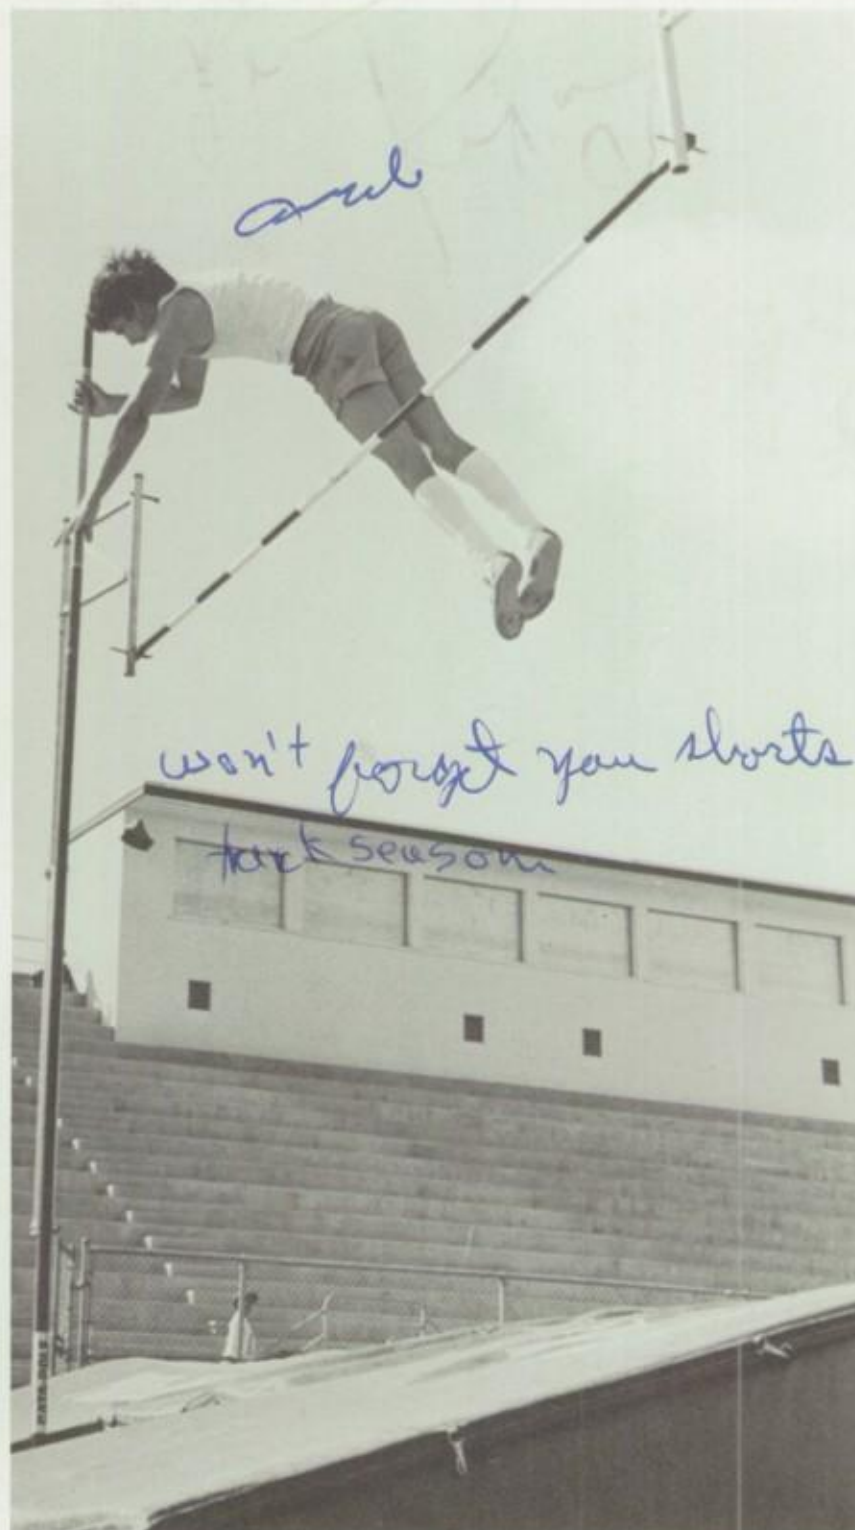 and
won't forget you shorts
track season